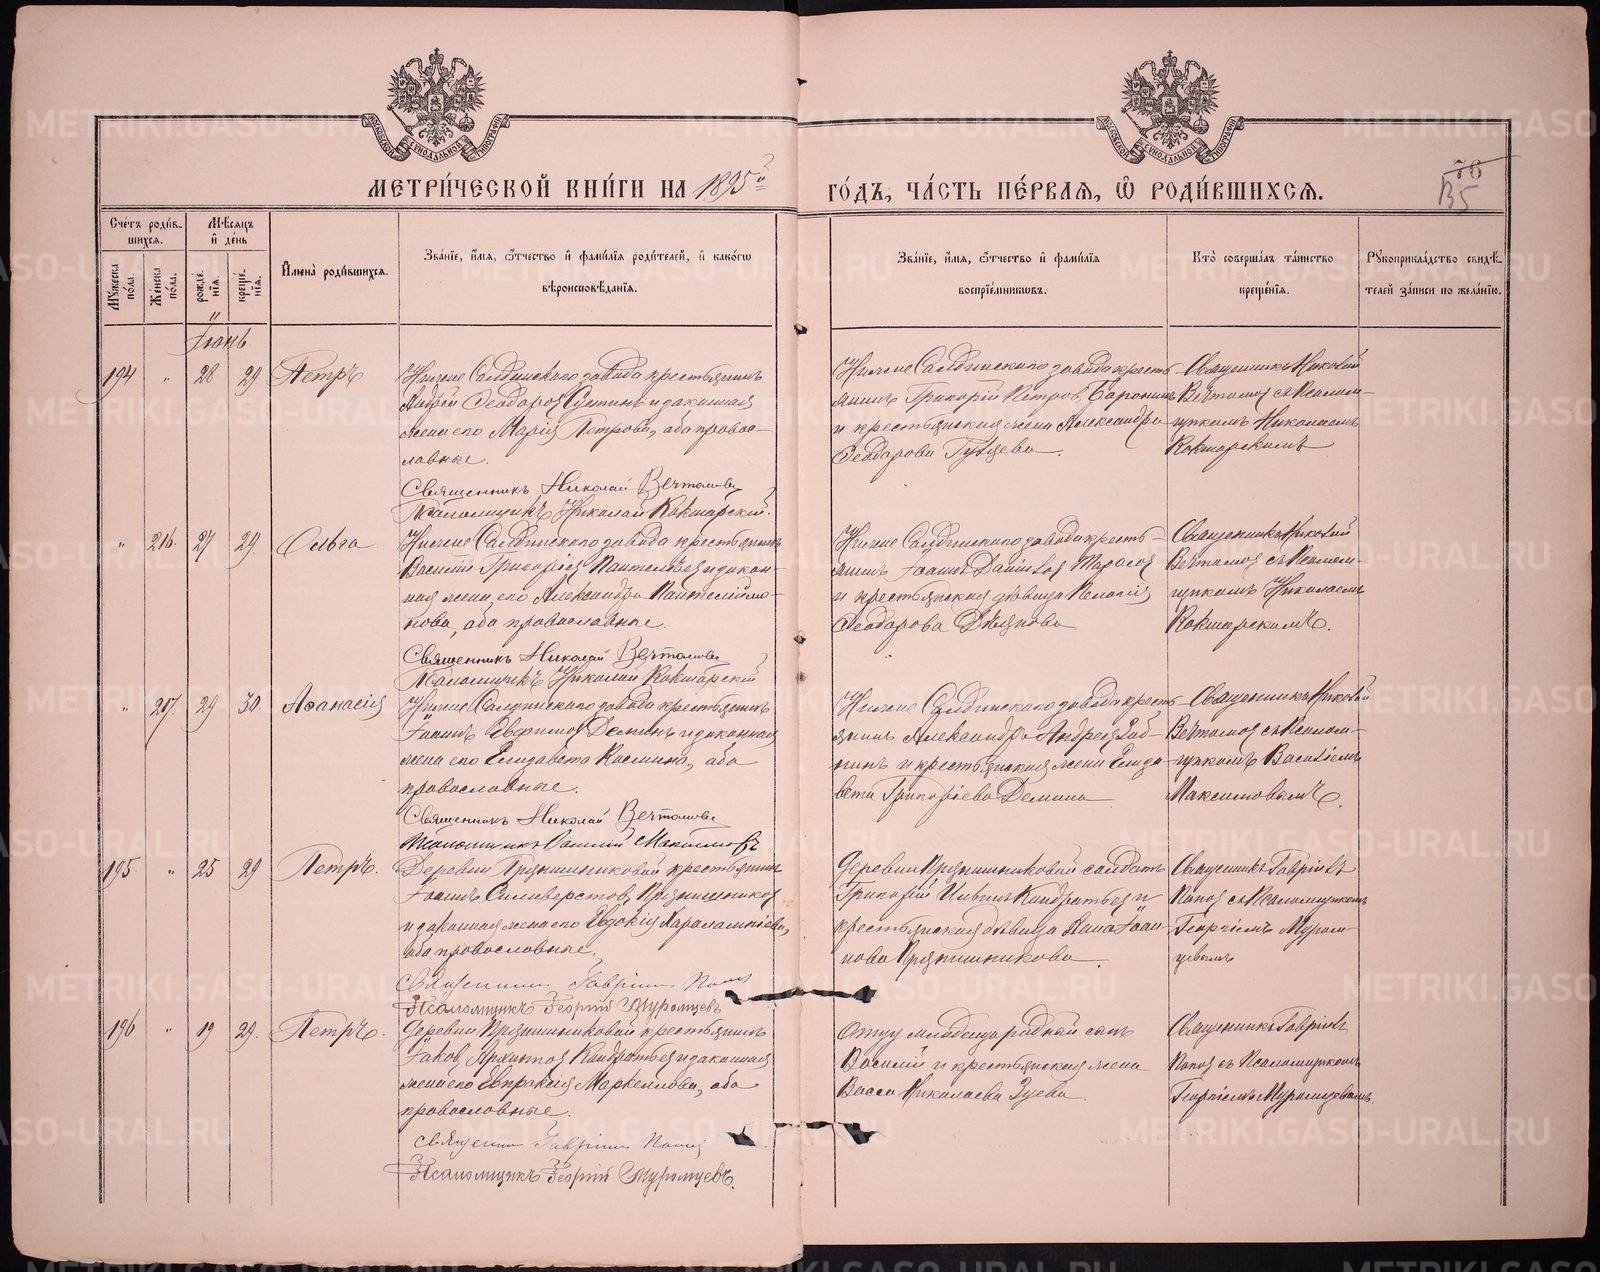 МЕТРИ́ЧЕСКОЙ КНИ́ГИ НА 1895й
ГО́ДЪ, ЧА́СТЬ ПЕ́РВАЯ, Ѽ РОДИ́ВШИХСЯ.
135
Сче́тъ роди́в-
шихся.
Мѣ́сяцъ
и҆ де́нь
И҆мена̀ роди́вшихся.
Зва́нїе, и҆́мя, ѻ҆́тчество и҆ фами́лїя роди́телей, и҆ како́гѡ
вѣроисповѣ́данїя.
Зва́нїе, и҆́мя, ѻ҆́тчество и҆ фами́лїя
воспрїе́мниковъ.
Кто̀ соверша́лъ та́инство
креще́нїя.
Рꙋкоприкла́дство свидѣ́-
телей за́писи по жела́нїю.
Мꙋ́жеска
по́ла.
Же́нска
по́ла.
рожде́-
нїя.
креще́-
нїя.
Іюнь
194 " 28 29 Петръ
Нижне Салдинскаго завода крестьянинъ
Андрей Ѳеодоровъ и законная
жена его Марія Петрова, оба правос-
лавные.
Священникъ Николай
Псаломщикъ Николай Кокшарскій.
Нижне Салдинскаго завода кресть-
янинъ Григорій Петровъ
и крестьянская жена Александра
Ѳеодорова
Священникъ Николай
съ Псалом-
щикомъ Николаемъ
Кокшарскимъ
" 216. 27 29. Ольга
Нижне Салдинскаго завода крестьянинъ
Василій Григорьевъ Пантелѣевъ и закон-
ная жена его Александра Пантелеимо-
нова, оба православные.
Священникъ Николай
Псаломщикъ Николай Кокшарскій
Нижне Салдинскаго завода кресть-
янинъ Іоаннъ Тарасовъ
и крестьянская дѣвица Пелагія
Ѳеодорова
Священникъ Николай
съ Псалом-
щикомъ Николаемъ
Кокшарскимъ.
" 217. 29 30. Аѳанасія
Нижне Салдинскаго завода крестьянинъ
Іоаннъ Евфимовъ Деминъ и законная
жена его Елизавета Космина, оба
православные.
Священникъ Николай
Псаломщикъ Василій Максимовъ
Нижне Салдинскаго завода кресть-
янинъ Александръ Андреевъ
и крестьянская жена Елиза-
вета Григоріева Демина
Священникъ Николай
съ Псалом-
щикомъ Василіемъ
Максимовымъ.
195. " 25 29 Петръ.
Деревни Прянишниковой крестьянинъ
Іоаннъ Силиверстовъ Прянишниковъ
и законная жена его Евдокія Харалампіева,
оба православные.
Священникъ Гавріилъ Поповъ
Псаломщикъ Георгій Муромцевъ
Деревни Прянишниковой солдатъ
Григорій Кондратьевъ и
крестьянская дѣвица Анна Іоан-
нова Прянишникова.
Священникъ Гавріилъ
Поповъ съ Псаломщикомъ
Георгіемъ Муром-
цевымъ
196 " 19 29. Петръ.
Деревни Прянишниковой крестьянинъ
Іаковъ Архиповъ Кондратьевъ и законная
жена его Евпраксія Маркеллова, оба
православные.
Священникъ Гавріилъ Поповъ
Псаломщикъ Георгій Муромцевъ.
Отцу младенца родной сынъ
Василій и крестьянская жена
Васса Николаева Зуева.
Священникъ Гавріилъ
Поповъ съ Псаломщикомъ
Георгіемъ Муромцевымъ.
METRIKI.GASO-URAL.RU